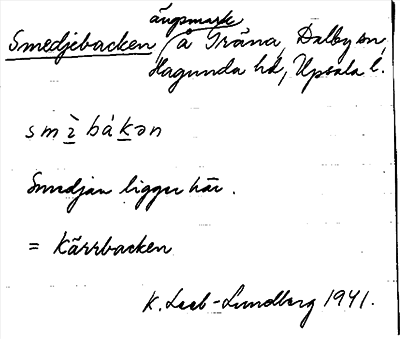 ängsmark
Smedjebacken / å Träna, Dalby sn,
Hagunda hd, Upsala l.
smὶ bákən
Smedjan ligger här.
= Kärrbacken
K. Leeb-Lundberg 1941.